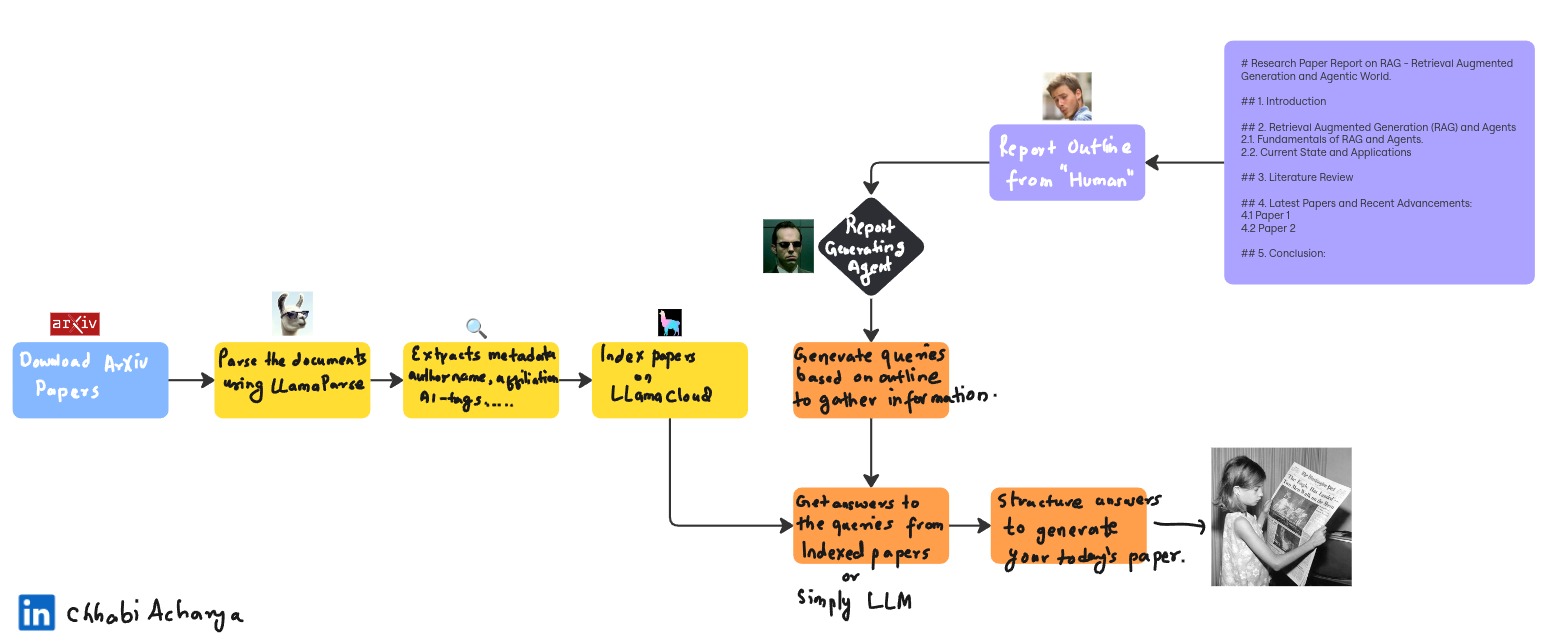 # Research Paper Report on RAG - Retrieval Augmented
Generation and Agentic World.
## 1. Introduction
## 2. Retrieval Augmented Generation (RAG) and Agents
2.1. Fundamentals of RAG and Agents.
2.2. Current State and Applications
## 3. Literature Review
## 4. Latest Papers and Recent Advancements:
4.1 Paper 1
4.2 Paper 2
## 5. Conclusion:
Report Outline
from "Human"
Report
Generating
Agent
arXiv
Download ArXiv
Papers
Parse the documents
using LLamaParse
Extracts metadata
author name, affiliation
AI-tags.....
Index papers
on
LLamaCloud
Generate queries
based on outline
to gather information.
Get answers to
the queries from
Indexed papers
or
Simply LLM
Structure answers
to generate
your today's paper.
The Washington Post
'The Eagle Has Landed'—
Two Men Walk on the Moon
in
Chhabi Acharya